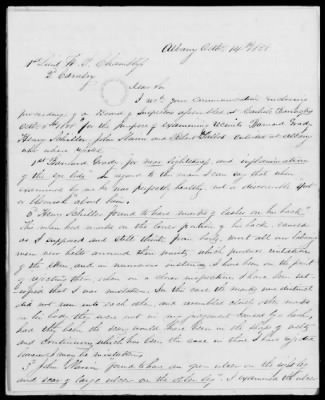 Albany Octr 14th 1858
1st Lieut W. P. Chambliss
2d Cavalry
Dear Sir
I recd your communication enclosing
proceedings of a Board of Inspectors assembled at Carlisle Barracks
Octr 8th 1858 for the purpose of examining recruits Barnard Grady
Henry Schiller John Slavin and enlisted at Albany
who were rejected.
1st Barnard Grady for near sightedness and inflammation
of the eye lids" In regard to the man I can say that when
examined by me he was perfectly healthy, not a discoverable spot
or blemish about him.
2d Henry Schiller found to have marks of on his back"
This man had marks on the lower portion of his back, caused
as I supposed and still think from belts, most all our laboring
men wear belts around their waists, which produces irritation
of the skin and in numerous instances I have been on the point
of rejecting them when on a closer inspection I have been
that I was mistaken. In this case the marks were distinct
did not run into each other and resembled other marks
on his body they were not in my judgement caused by a lash,
had they been the scars would have been in the shape of welts
and continuous, which has been the case in those I have rejected
I may be mistaken.
3d John Slavin found to have an open ulcer on the left leg
and scar of large ulcer on the other leg" I examined the ulcer